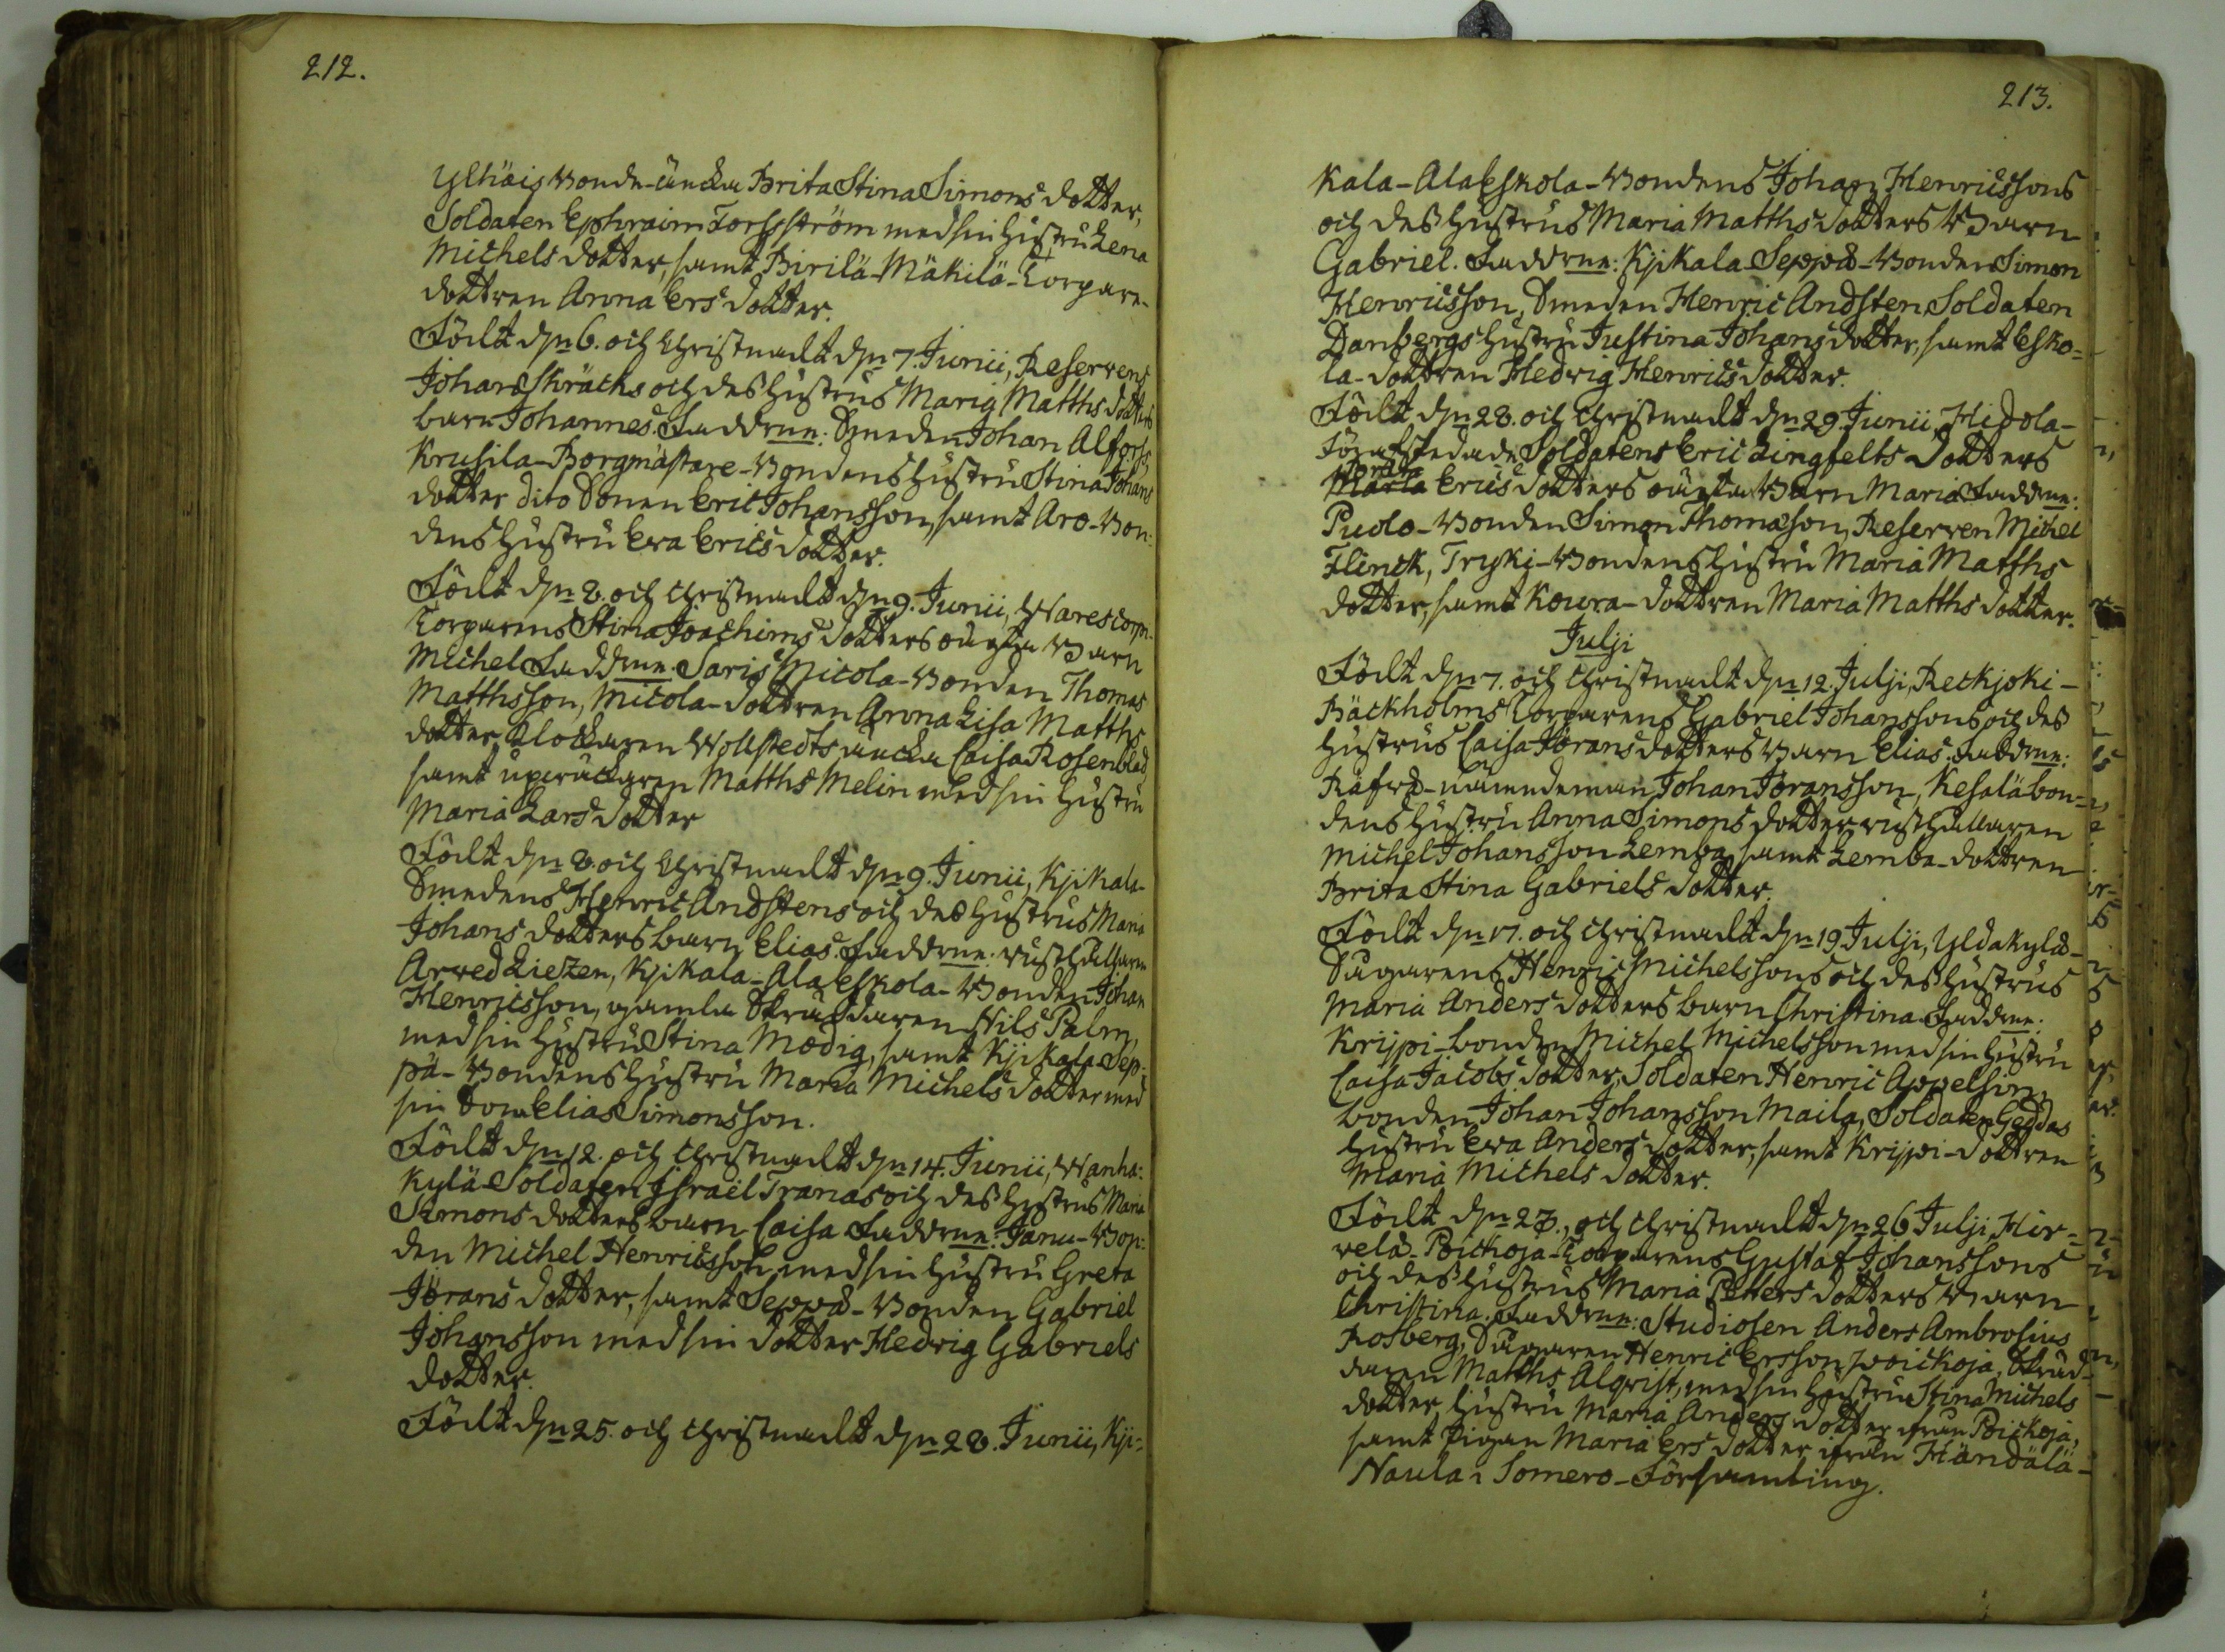 212.
Ylhäis Bonde-änckia Brita Stina Simons dotter,
Soldaten Ephraim Forsström med sin hustru Lena
Michels dotter, samt Pirilä-Mäkilä-Torpare-
dottren Anna Ers dotter.
Födt d̅n̅ 6. och Christnadt d̅n̅ 7. Junii, Reservens
Johan Skräcks och dess hustrus Maria Matths dotters
barn Johannes. Faddrne: Smeden Johan Alfors,
Krusila-Borgmästare-Bondens hustru Stina Johans
dotter dito Sonen Eric Johansson, samt Aro-Bon-
dens hustru Eva Erics dotter.
Födt d̅n̅ 8. och Christnadt d̅n̅ 9. Junii, Warestorp-
Torparens Stina Joachims dotters oägta Barn
Michel Faddrne. Saris Nicola-Bonden Thomas
Matthsson, Nicola-dottren Anna Lisa Matths
dotter Klockaren Wollstedts äncka Caisa Rosenblad,
samt upväckaren Matths Melin med sin hustru
Maria Lars dotter
Födt d̅n̅ 8. och Christnadt d̅n̅ 9. Junii, Kjikala-
Smedens Henric Andstens och des hustrus Maria
Johans dotters barn Elias. Faddrne: rusthållaren
Arved Liezen, Kjikala-AlaEskola-Bonden Johan
Henricsson, gamla Skräddaren Nils Palm,
med sin hustru Stina Modig, samt Kjikala-Sep-
pä-Bondens hustru Maria Michels dotter med
sin Son Elias Simonsson.
Födt d̅n̅ 12. och Christnadt d̅n̅ 14. Junii, Wanha-
Kylä-Soldaten Israel Tranas och dess hustrus Maria
Simons dotters barn Caisa Faddrne: Janu-Bon-
den Michel Henricsson med sin hustru Greta
Jörans dotter, samt Seppä-Bonden Gabriel
Johansson med sin dotter Hedvig Gabriels
dotter.
Födt d̅n̅ 25. och Christnadt d̅n̅ 28. Junii, Kji-
213.
kala-AlaEskola-Bondens Johan Henricssons
och dess hustrus Maria Matths dotters Barn
Gabriel. Faddrne: Kjikala-Seppä-Bonden Simon
Henricsson, Smeden Henric Andsten Soldaten
Danbergs hustru Justina Johans dotter, samt Esko-
la-dottren Hedvig Henrics dotter.
Födt d̅n̅ 28. och Christnadt d̅n̅ 29. Junii, Hidola-
Soldatens Eric Lingfelts dotters
Maria Erics dotters oägta Barn Maria Faddrne:
Puolo-Bonden Simon Thomasson, Reserven Michel
Flinck, Tryski-Bondens hustru Maria Matths
dotter, samt Kowra-dottren Maria Matths dotter.
Julji
Födt d̅n̅ 7. och Christnadt d̅n̅ 12. Julji, Reckjoki-
Bäckholms Torparens Gabriel Johanssons och des
hustrus Caisa Jörans dotters Barn Elias. Faddrne:
Räfwä-nämndeman Johan Jöransson, Kesaläbon-
dens hustru Anna Simons dotter rusthållaren
Michel Johansson Lemba, samt Lemba-dottren
Brita Stina Gabriels dotter.
Födt d̅n̅ 17. och Christnadt d̅n̅ 19. Julji, Yldäkylä-
Sågarens Henric Michelssons och dess hustrus
Maria Anders dotters barn Christina. Faddrne:
Krijpi-bonden Michel Michelsson med sin hustru
Caisa Jacobs dotter, Soldaten Henric Appelsin,
bonden Johan Johansson Maila, Soldaten Geddas
hustru Eva Anders dotter, samt Krijpi-dottren
Maria Michels dotter.
Födt d̅n̅ 23., och Christnadt d̅n̅ 26 Julji, Hir-
velä-Poickoja-Torparens Gustaf Johanssons
och dess hustrus Maria Petters dotters Barn
Christina. Faddrne: Studiosen Anders Ambrosius
Rosberg, Sågaren Henric Ersson Poickoja, Skräd-
daren Matths Alqvist, med sin hustru Stina Michels
dotter, hustru Maria Anders dotter ifrån Poickoja,
samt Pigan Maria Ers dotter ifrån Händälä-
Naula i Somero-Församling.